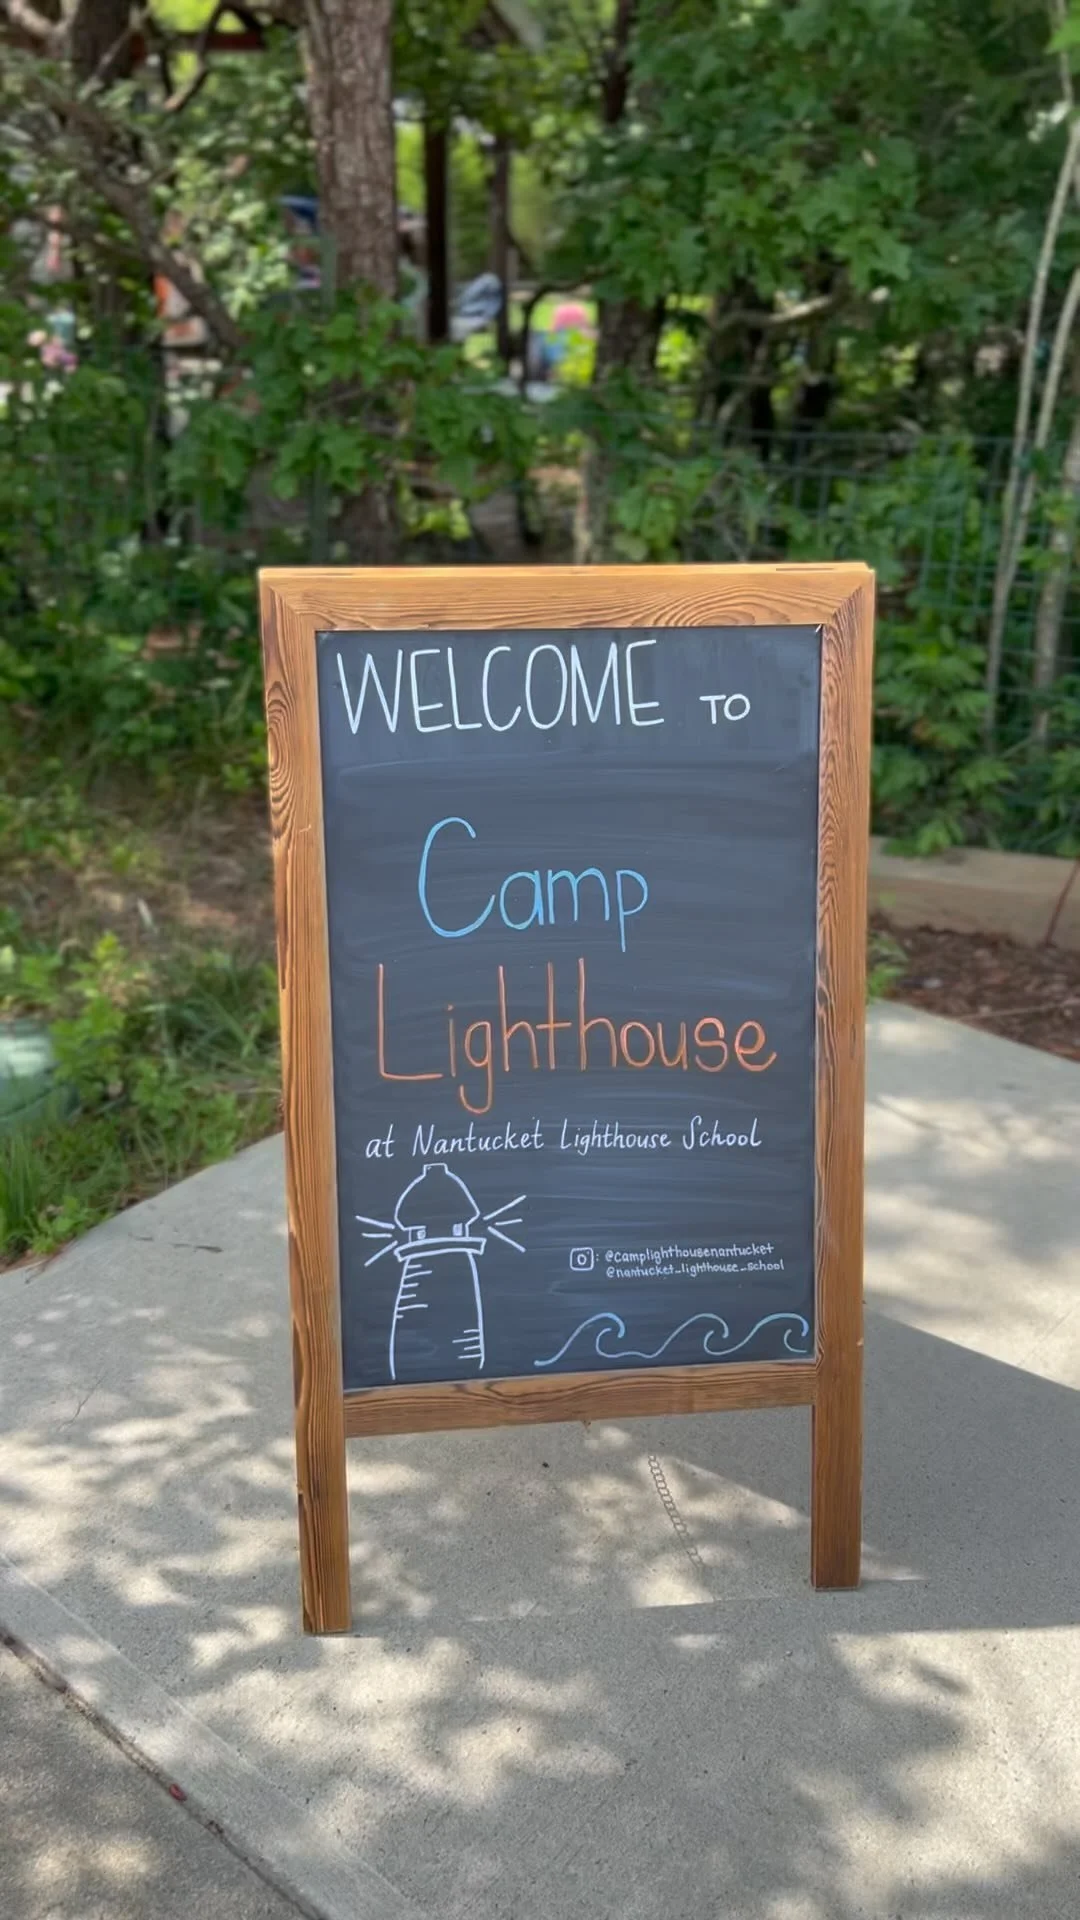 WELCOME TO
Camp
Lighthouse
at Nantucket Lighthouse School
: @camplighthousenantucket
@nantucket_lighthouse_school